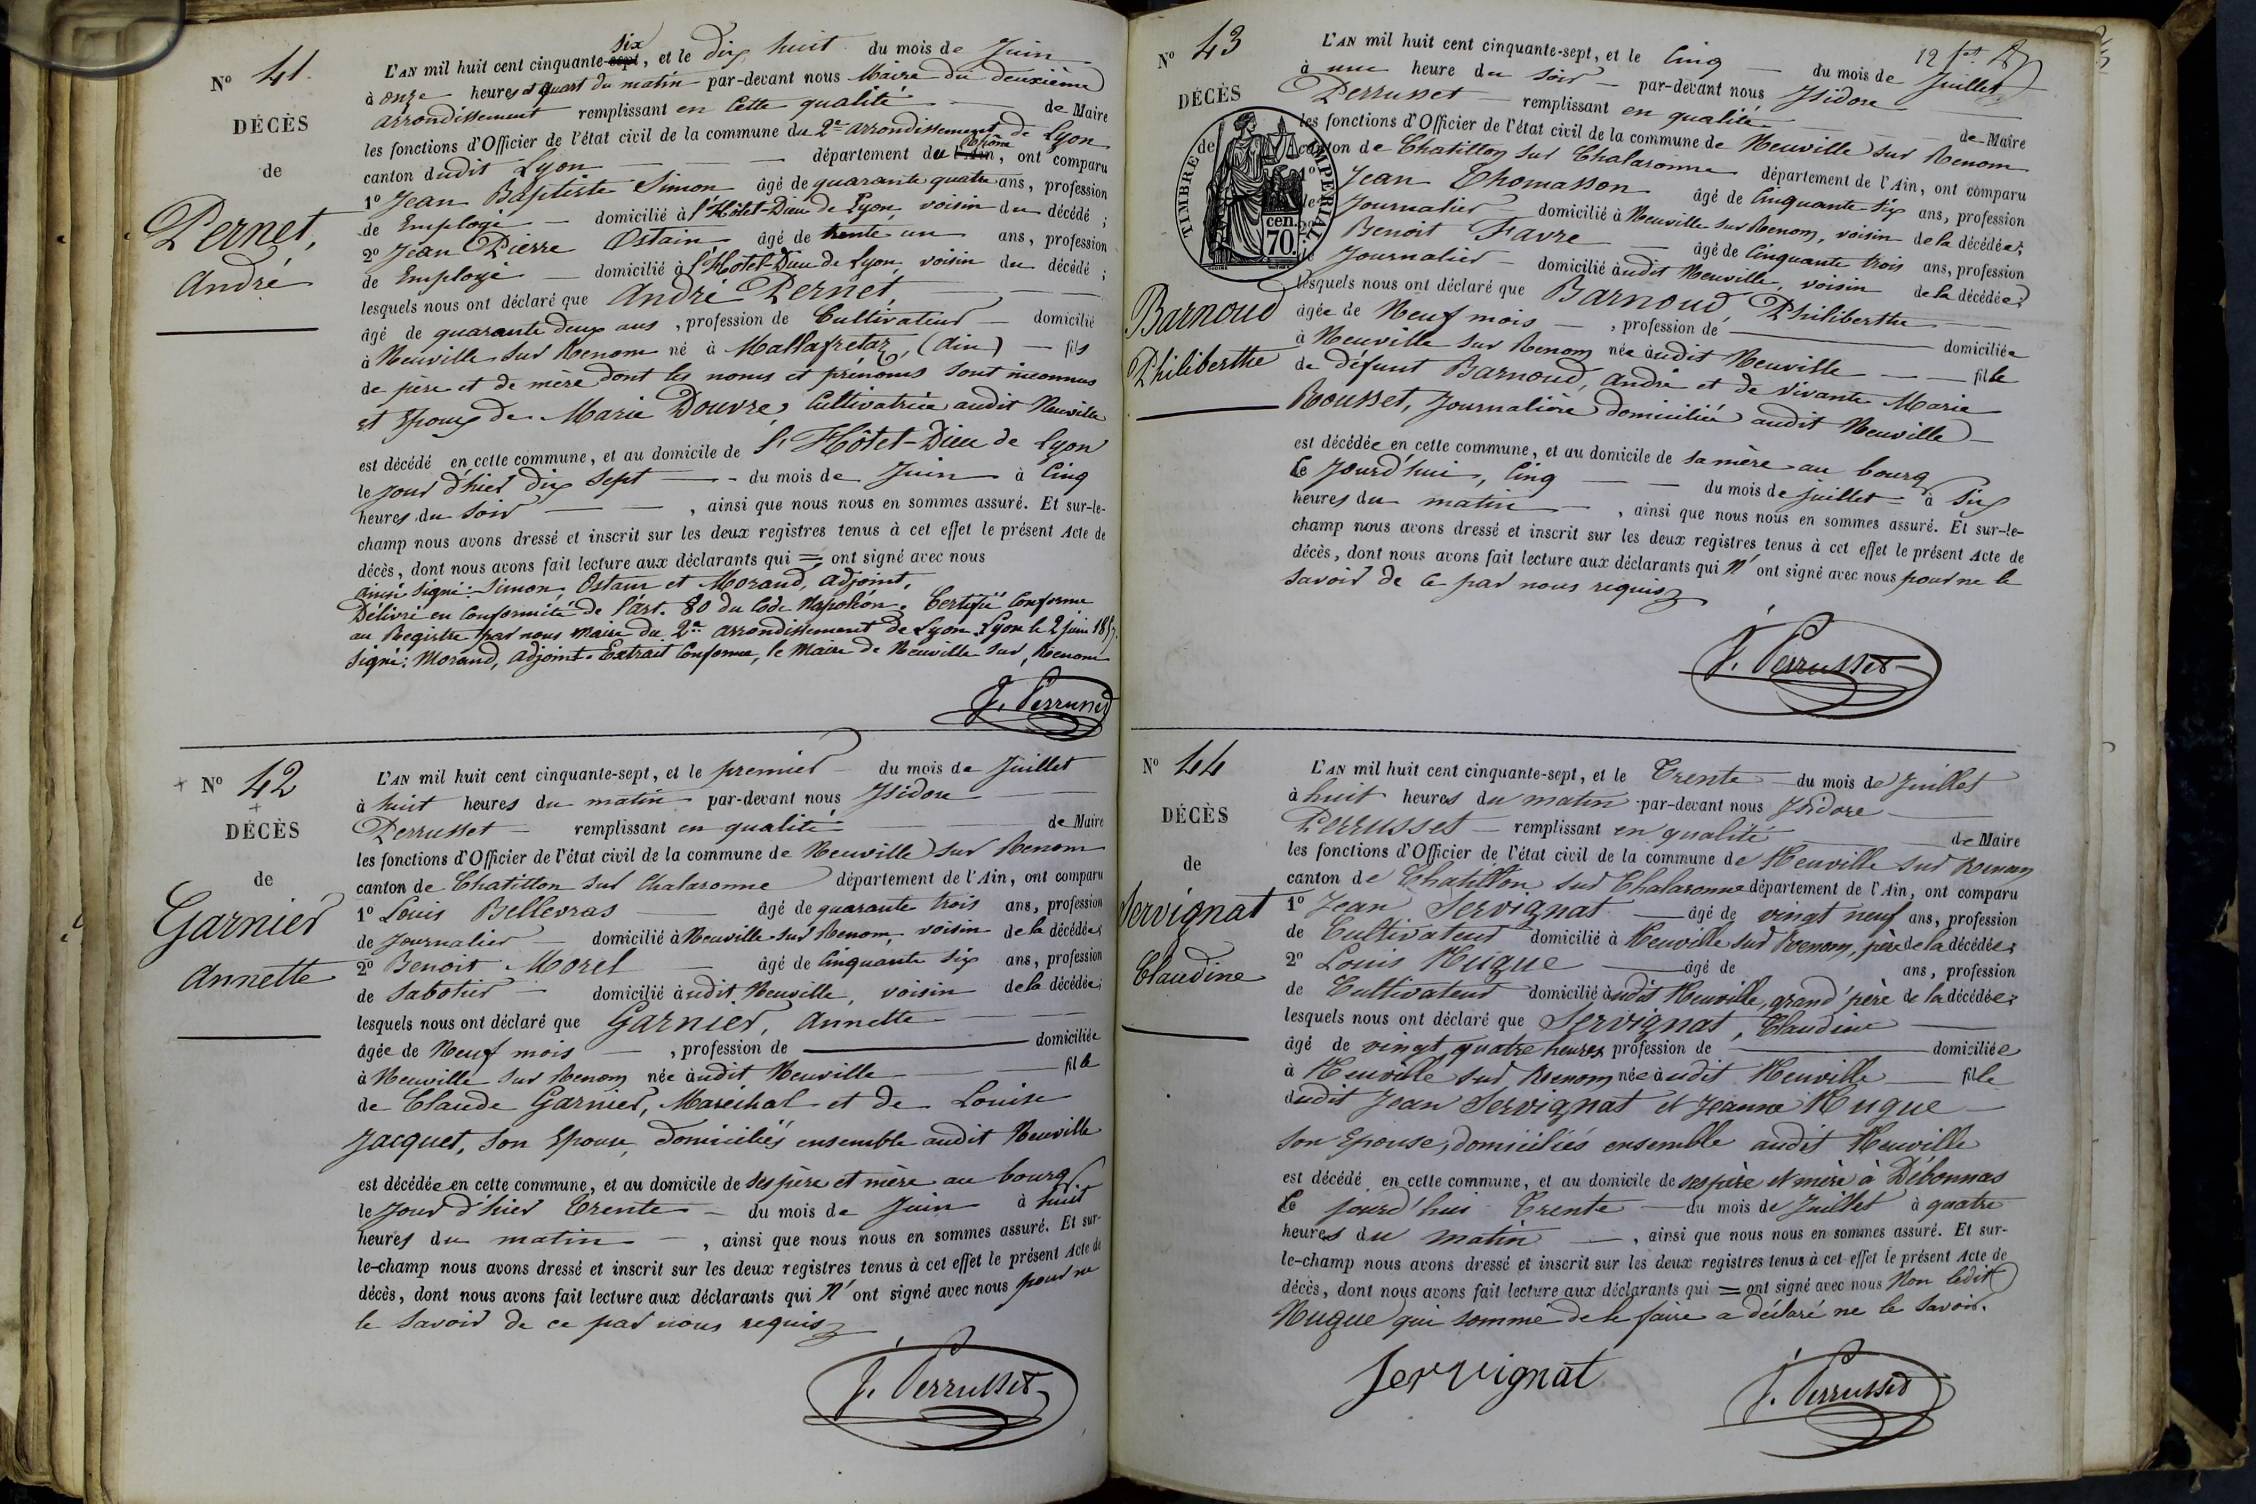 N° 41.
DÉCÈS
de
Pernet,
André
L'AN mil huit cent cinquante-sept six, et le dix huit du mois de Juin
à onze heures et quart du matin par-devant nous Maire du deuxième
arrondissement remplissant en cette qualité de Maire
les fonctions d'Officier de l'état civil de la commune du 2e arrondissement de Lyon
canton dudit Lyon département du l'Ain Rhône, ont comparu
1° Jean Baptiste Simon âgé de quarante quatre ans, profession
de Employé domicilié à l'Hôtel-Dieu de Lyon, voisin du décédé ;
2° Jean Pierre Ostain âgé de trente un ans, profession
de Employé domicilié à l'Hotel-Dieu de Lyon, voisin du décédé ;
lesquels nous ont déclaré que André Pernet,
âgé de quarante deux ans, profession de Cultivateur domicilié
à Neuville sur Renom né à Mallafretaz, (Ain) fils
de père et de mère dont les noms et prénoms sont inconnus
et Epoux de Marie Douvre, Cultivatrice audit Neuville
est décédé en cette commune, et au domicile de l'Hôtel-Dieu de Lyon
le jour d'hier dix sept du mois de Juin à Cinq
heures du soir, ainsi que nous nous en sommes assuré. Et sur-le-
champ nous avons dressé et inscrit sur les deux registres tenus à cet effet le présent Acte de
décès, dont nous avons fait lecture aux déclarants qui = ont signé avec nous
ainsi signé : Simon, Ostain et Morand, adjoint.
Délivré en Conformité de l'art. 80 du Code Napoléon. Certifié Conforme
au Registre par nous Maire du 2e arrondissement de Lyon. Lyon le 2 juin 1857.
signé : Morand, adjoint. Extrait Conforme, le Maire de Neuville sur Renom
J. Perrusset
N° 42
DÉCÈS
de
Garnier
Annette
L'AN mil huit cent cinquante-sept, et le premier du mois de Juillet
à huit heures du matin par-devant nous Isidore
Perrusset remplissant en qualité de Maire
les fonctions d'Officier de l'état civil de la commune de Neuville sur Renom
canton de Chatillon sur Chalaronne département de l'Ain, ont comparu
1° Louis Bellevras âgé de quarante trois ans, profession
de Journalier domicilié à Neuville sur Renom, voisin de la décédée ;
2° Benoit Morel âgé de Cinquante six ans, profession
de Sabotier domicilié àudit Neuville, voisin de la décédée ;
lesquels nous ont déclaré que Garnier, Annette
âgée de Neuf mois, profession de domiciliée
à Neuville sur Renom née àudit Neuville fille
de Claude Garnier, Maréchal et de Louise
Jacquet, son Epouse, domiciliés ensemble audit Neuville
est décédée en cette commune, et au domicile de ses père et mère au bourg
le jour d'hier Trente du mois de Juin à huit
heures du matin, ainsi que nous nous en sommes assuré. Et sur-
le-champ nous avons dressé et inscrit sur les deux registres tenus à cet effet le présent Acte de
décès, dont nous avons fait lecture aux déclarants qui n'ont signé avec nous pour ne
le savoir de ce par nous requis
J. Perrusset
12
N° 43
DÉCÈS
de
TIMBRE IMPERIAL
70. cen.
Barnoud
Philiberthe
L'AN mil huit cent cinquante-sept, et le Cinq du mois de Juillet
à une heure du soir par-devant nous Isidore
Perrusset remplissant en qualité de Maire
les fonctions d'Officier de l'état civil de la commune de Neuville sur Renom
canton de Chatillon sur Chalaronne département de l'Ain, ont comparu
1° Jean Thomasson âgé de Cinquante six ans, profession
de Journalier domicilié à Neuville sur Renom, voisin de la décédée ;
2° Benoit Favre âgé de Cinquante trois ans, profession
de Journalier domicilié àudit Neuville, voisin de la décédée ;
lesquels nous ont déclaré que Barnoud, Philiberthe
âgée de Neuf mois, profession de domiciliée
à Neuville sur Renom née àudit Neuville fille
de défunt Barnoud, André et de vivante Marie
Rousset, Journalière domiciliée audit Neuville
est décédée en cette commune, et au domicile de sa mère au bourg
Ce jourd'hui, Cinq du mois de juillet à Six
heures du matin, ainsi que nous nous en sommes assuré. Et sur-le-
champ nous avons dressé et inscrit sur les deux registres tenus à cet effet le présent Acte de
décès, dont nous avons fait lecture aux déclarants qui n'ont signé avec nous pour ne le
savoir de ce par nous requis
J. Perrusset
N° 44
DÉCÈS
de
Servignat
Claudine
L'AN mil huit cent cinquante-sept, et le Trente du mois de Juillet
à huit heures du matin par-devant nous Isidore
Perrusset remplissant en qualité de Maire
les fonctions d'Officier de l'état civil de la commune de Neuville sur Renom
canton de Chatillon sur Chalaronne département de l'Ain, ont comparu
1° Jean Servignat âgé de vingt neuf ans, profession
de Cultivateur domicilié à Neuville sur Renom, père de la décédée ;
2° Louis Nugue âgé de ans, profession
de Cultivateur domicilié àudit Neuville, grand'père de la décédée ;
lesquels nous ont déclaré que Servignat, Claudine
âgé de vingt quatre heures profession de domiciliée
à Neuville sur Renom née àudit Neuville fille
dudit Jean Servignat et Jeanne Nugue
son Epouse, domiciliés ensemble audit Neuville
est décédé en cette commune, et au domicile de ses père et mère à Débonnas
Ce jourd'hui Trente du mois de Juillet à quatre
heures du matin, ainsi que nous nous en sommes assuré. Et sur-
le-champ nous avons dressé et inscrit sur les deux registres tenus à cet effet le présent Acte de
décès, dont nous avons fait lecture aux déclarants qui = ont signé avec nous Non ledit
Nugue qui sommé de le faire a déclaré ne le savoir.
Servignat
J. Perrusset